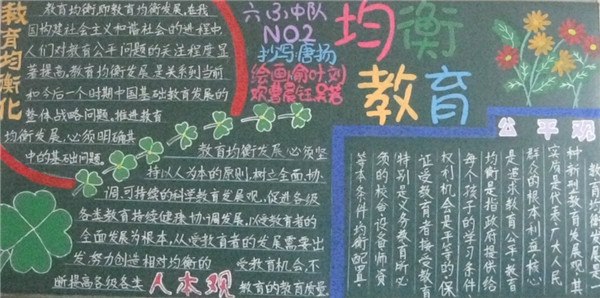 教育均衡化
教育均衡即教育均衡发展,在我
国构建社会主义和谐社会的进程中,
人们对教育公平问题的关注程度显
著提高,教育均衡发展是关系到当前
和今后一个时期中国基础教育发展的
整体战略问题,推进教育
均衡发展,必须明确其
中的基础问题。
六(3)中队
NO2
抄写:唐扬
均衡
教育
教育均衡发展,必须坚
持以人为本的原则,树立全面,协
调,可持续的科学教育发展观,促进各级
各类教育持续健康协调发展,以受教育者的
全面发展为根本,从受教育者的发展需要出
发,努力创造相对均衡的 受教育机会,不
断提高各级各类 教育的教育质量
人本观
公平观
教育均衡发展是一
种新型教育发展观,其
实质是代表广大人民
群众的根本利益,核心
是追求教育公平,教育
均衡是指政府提供给
每个孩子的学习条件
权利机会是平等的,保
证受教育者接受教育,
特别是义务教育所必
须的校舍设备师资
等本条件均衡配置